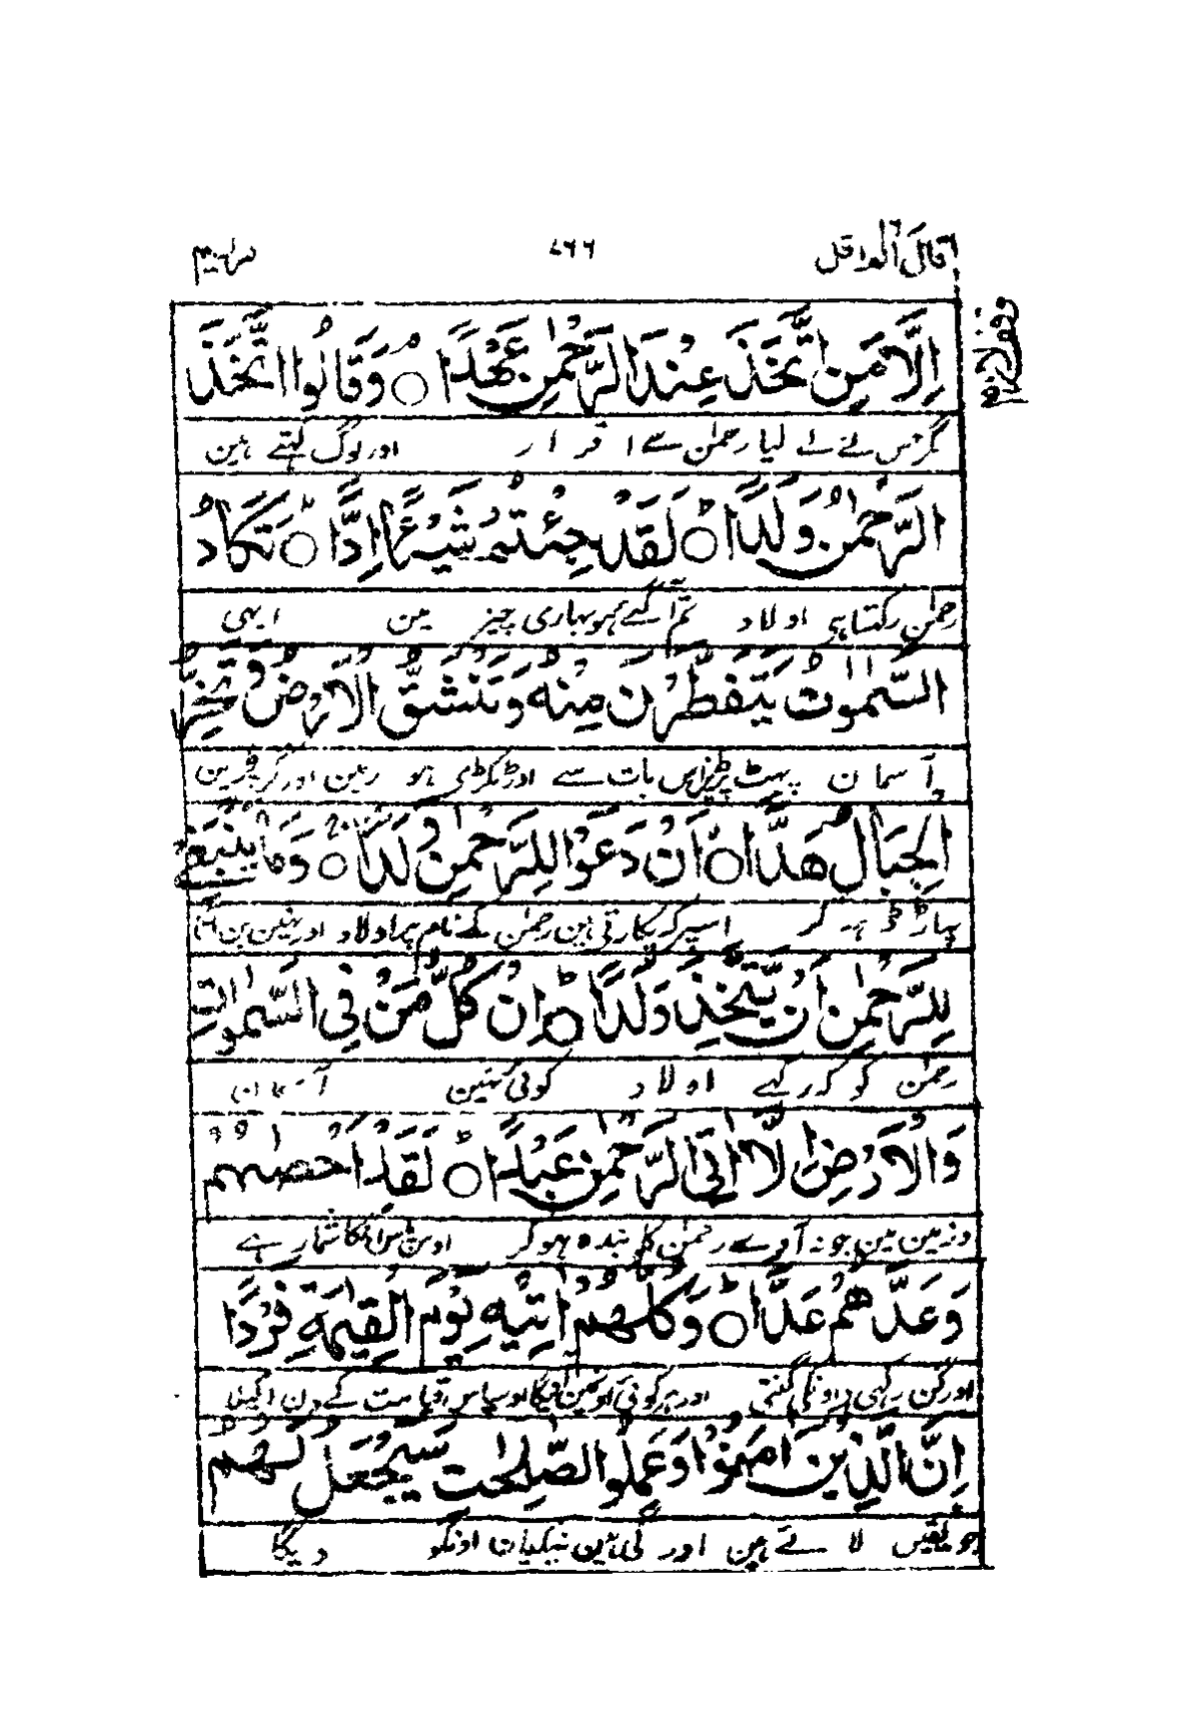 قال الم ۱۶ ۷۶۶ مريم
إِلَّا مَنِ اتَّخَذَ عِنْدَ الرَّحْمٰنِ عَهْدًا ۝ وَقَالُوا اتَّخَذَ
لیا رحمٰن سے اقرار اور لوگ کہتے ہین
الرَّحْمٰنُ وَلَدًا ۝ لَقَدْ جِئْتُمْ شَيْئًا إِدًّا ۝ تَكَادُ
رحمٰن رکھتا ہی اولاد تم آگئے ہو بہاری چیز مین ابہی
السَّمٰوٰتُ يَتَفَطَّرْنَ مِنْهُ وَتَنْشَقُّ الْاَرْضُ وَتَخِرُّ
آسمان پہٹ پڑین اس بات سے اور ٹکڑی ہو زمین اور گر پڑین
الْجِبَالُ هَدًّا ۝ اَنْ دَعَوْا لِلرَّحْمٰنِ وَلَدًا ۝ وَمَا يَنْبَغِيْ
پہاڑ ڈہہ کر اسپر کہ پکارتی ہین رحمٰن کے نام پر اولاد اور نہین بن آتا
لِلرَّحْمٰنِ اَنْ يَّتَّخِذَ وَلَدًا ۝ اِنْ كُلُّ مَنْ فِي السَّمٰوٰتِ
رحمٰن کو کہ رکہے اولاد کوئی نہین آسمان
وَالْاَرْضِ اِلَّا اٰتِي الرَّحْمٰنِ عَبْدًا ۝ لَقَدْ اَحْصٰهُمْ
و زمین مین جو نہ آوے رحمٰن کا بندہ ہو کر اوس پاس انکا شمار ہے
وَعَدَّهُمْ عَدًّا ۝ وَكُلُّهُمْ اٰتِيْهِ يَوْمَ الْقِيٰمَةِ فَرْدًا
اور گن رکہی ہی اونکی گنتی اور ہر کوئی اونمین آویگا اوسپاس قیامت کے دن اکیلا
اِنَّ الَّذِيْنَ اٰمَنُوْا وَعَمِلُوا الصّٰلِحٰتِ سَيَجْعَلُ لَهُمْ
جو یقین لائے ہین اور کی ہین نیکیان اونکو دیگا